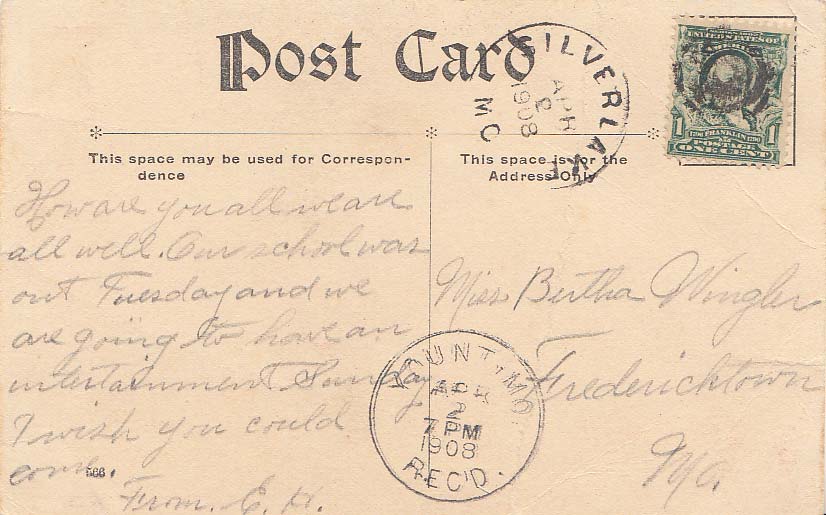 Post Card
SILVERLAKE
APR
2
1908
MO
UNITED STATES OF
AMERICA
1 FRANKLIN 1
POSTAGE
ONE CENT
This space may be used for Correspon-
dence
This space is for the
Address Only
How are you all we are
all well. Our school was
out Tuesday and we
are going to have an
intertainment Sunday
I wish you could
come.
From. E. K.
566
Miss Bertha Wingler
Fredericktown
Mo.
YOUNT, MO.
APR
2
7 PM
1908
REC'D.